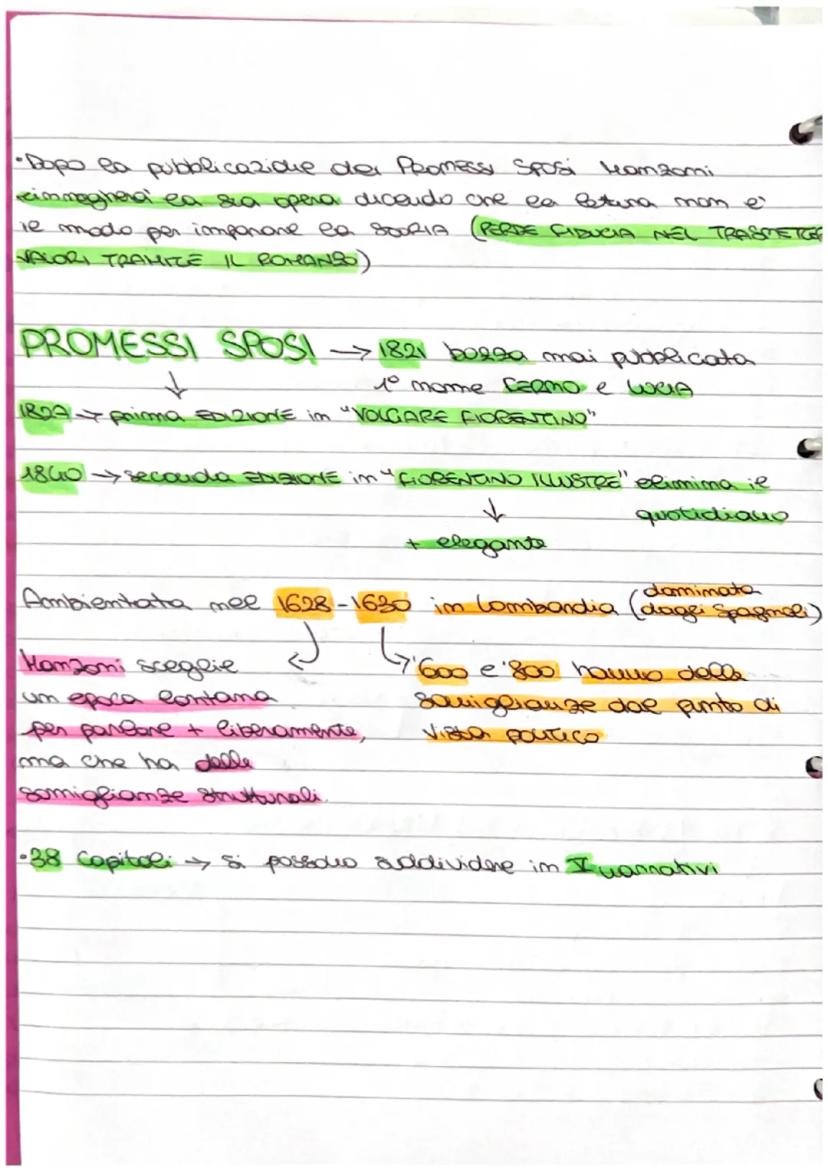 •Dopo la pubblicazione dei Promessi Sposi Manzoni
rinnegherà la sua opera dicendo che la lettura non è
il modo per imparare la STORIA (PERDE FIDUCIA NEL TRASMETTER
VALORI TRAMITE IL ROMANZO)
PROMESSI SPOSI → 1821 bozza mai pubblicata
↓ 1° nome FERMO e LUCIA
1827 → prima EDIZIONE in "VOLGARE FIORENTINO"
1840 → seconda EDIZIONE in "FIORENTINO ILLUSTRE" elimina il
↓ quotidiano
+ elegante
Ambientata nel 1628-1630 in Lombardia (dominata
dagli Spagnoli)
Manzoni sceglie
un epoca lontana
per parlare + liberamente,
ma che ha delle
somiglianze strutturali.
'600 e '800 hanno delle
somiglianze dal punto di
vista politico
•38 Capitoli → si possono suddividere in narrativi